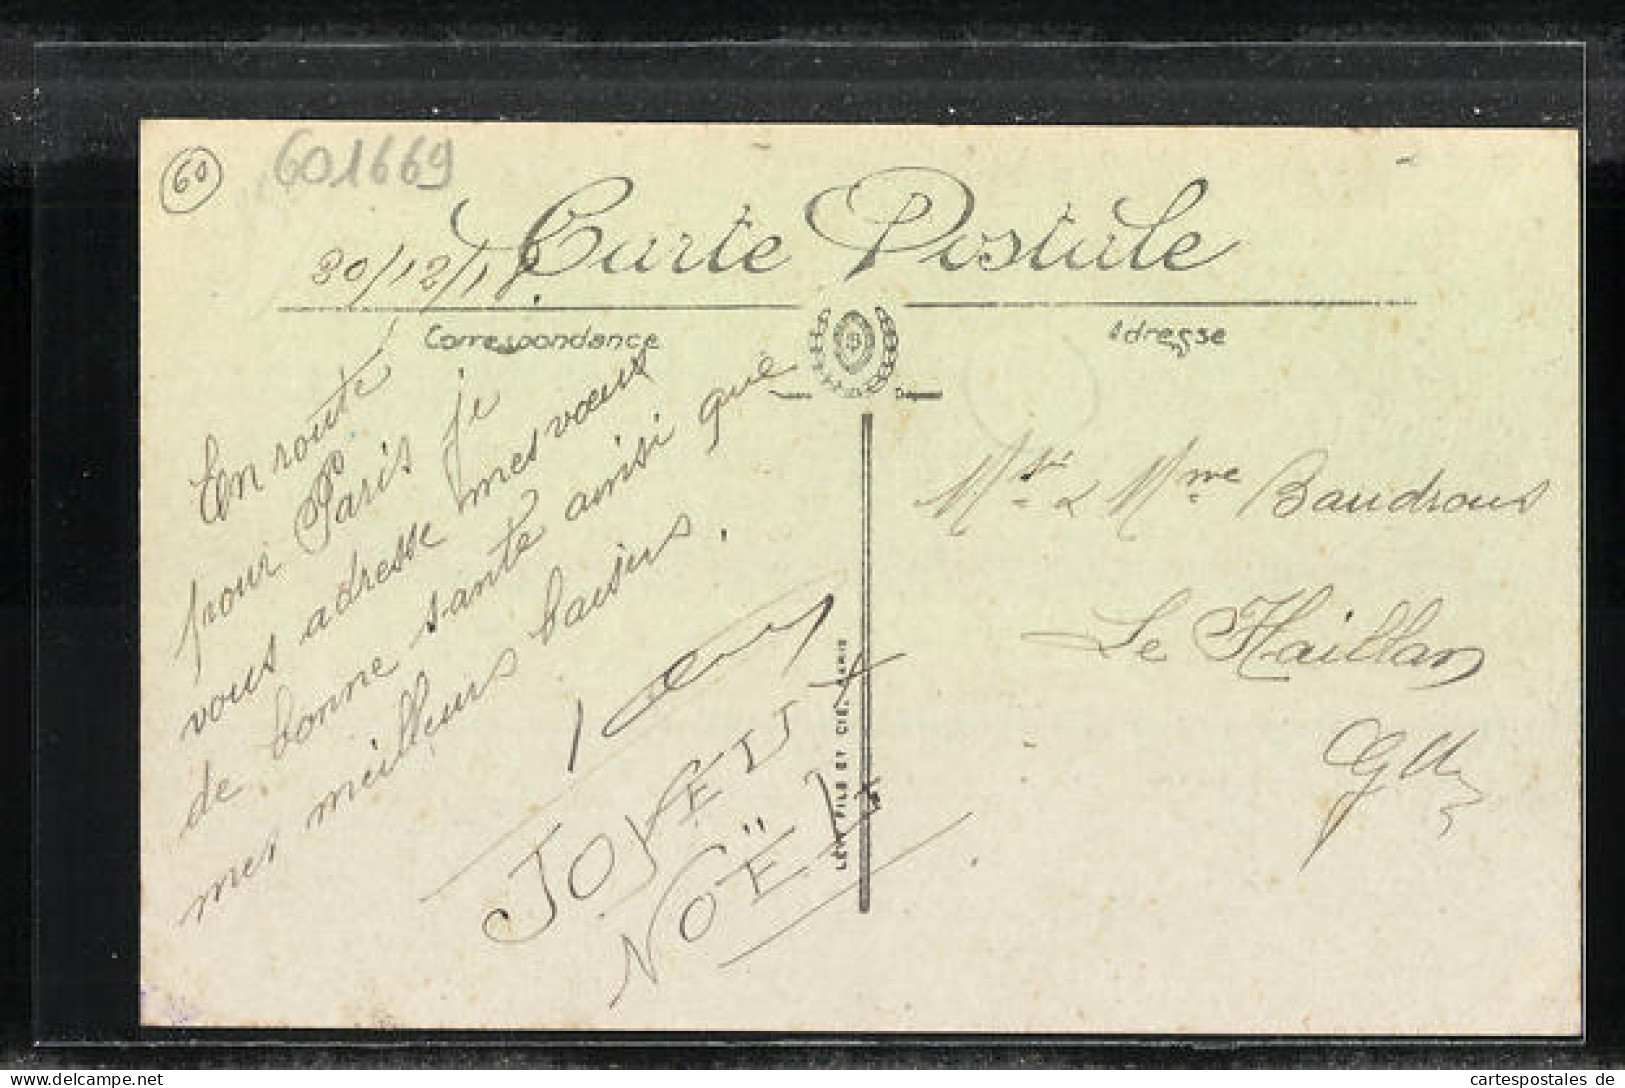 60
601669
Carte Postale
30/12/18
Correspondance
Adresse
En route
pour Paris je
vous adresse mes vœux
de bonne santé ainsi que
mes meilleurs baisers.
JOYEUX
NOËL
LEVY FILS ET CIE, PARIS
Mr & Mme Baudrous
Le Haillan
cartespostales de
delcampe.net